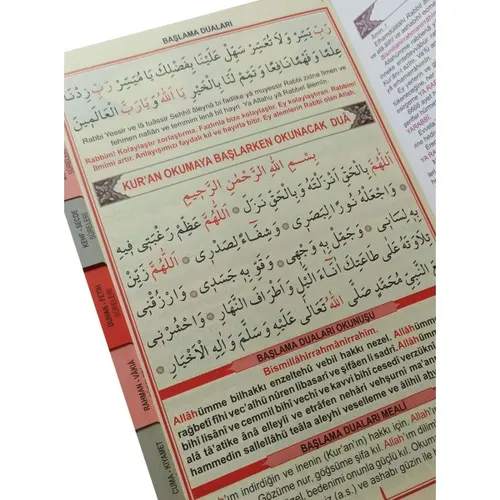 BAŞLAMA DUALARI
رَبِّ يَسِّرْ وَلَا تُعَسِّرْ سَهِّلْ عَلَيْنَا بِفَضْلِكَ يَا مُيَسِّرُ رَبِّ زِدْنَا
عِلْمًا وَفَهْمًا نَافِعًا وَتَمِّمْ لَنَا بِالْخَيْرِ يَا اَللهُ وَيَا رَبَّ الْعَالَمِينَ
Rabbi Yessir ve lâ tuâssir Sehhil âleynâ bi fadlike yâ muyessir Rabbi zidna ilmen ve
fehmen nafiân ve temmim lenâ bil hayri Ya Allahu yâ Rabbel âlemîn.
Rabbim! Kolaylaştır zorlaştırma. Fazlınla bize kolaylaştır. Ey kolaylaştıran. Rabbim!
İlmimi artır. Anlayışımızı faydalı kıl ve hayırla bitir. Ey alemlerin Rabbi olan Allah.
KUR'AN OKUMAYA BAŞLARKEN OKUNACAK DUÂ
بِسْمِ اللهِ الرَّحْمٰنِ الرَّحِيمِ
اَللّٰهُمَّ بِالْحَقِّ اَنْزَلْتَهُ وَبِالْحَقِّ نَزَلَ اَللّٰهُمَّ عَظِّمْ رَغْبَتِي فِيهِ
وَاجْعَلْهُ نُورًا لِبَصَرِي وَشِفَاءً لِصَدْرِي اَللّٰهُمَّ زَيِّنْ
بِهِ لِسَانِي وَجَمِّلْ بِهِ وَجْهِي وَقَوِّ بِهِ جَسَدِي وَارْزُقْنِي
تِلَاوَتَهُ عَلَى طَاعَتِكَ اٰنَاءَ الَّيْلِ وَاَطْرَافَ النَّهَارِ وَاحْشُرْنِي
النَّبِيِّ مُحَمَّدٍ صَلَّى اللهُ تَعَالٰى عَلَيْهِ وَسَلَّمَ وَاٰلِهِ الْاَخْيَارِ
BAŞLAMA DUALARI OKUNUŞU
Bismillahirrahmânirrahîm.
Allâhümme bilhakkı enzeltehü vebil hakkı nezel. Allahümme
rağbetî fîhi vec'alhü nûren libasarî ve şifâen li sadrî.
bihî lisânî ve cemmil bihî vechî ve kavvi bihî cesedî verzüknî
alâ tâ'atike ânâ elleyli ve etrâfen nehâri vehşurnî ma'an
hammedin sallellâhü teâla aleyhi veselleme ve âlihil
BAŞLAMA DUALARI MEALİ
indirdiğin ve inenin (Kur'an'ın) hakkı için.
Gözüme nur, göğsüme şifa kıl.
KEHF- SECDE
SÛRELERİ
DUHAN - FETİH
SÛRELERİ
RAHMAN - VÂKIA
CUMA - KIYAMET